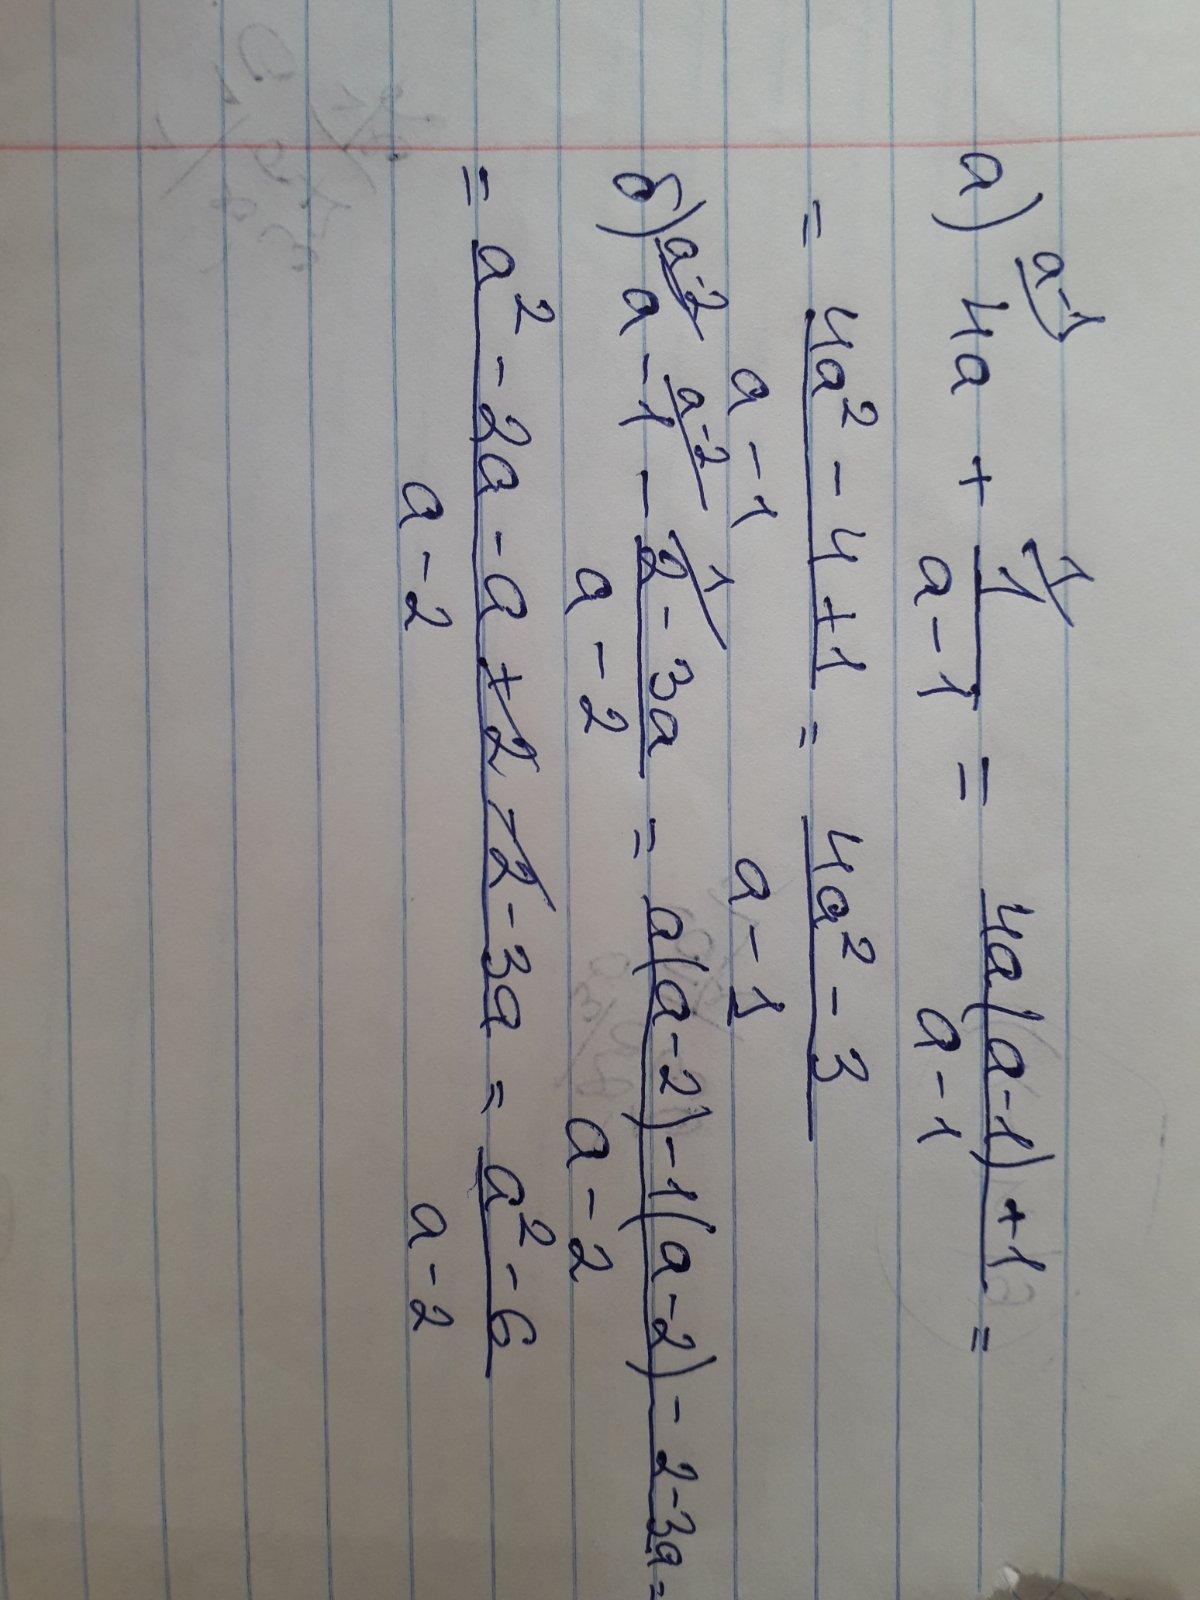 а) 4a^{a-1} + 1^{1}/(a-1) = (4a(a-1)+1)/(a-1) =
= (4a² - 4 + 1)/(a-1) = (4a² - 3)/(a-1)
б) a^{a-2} - 1^{a-2} - (2-3a)^{1}/(a-2) = (a(a-2)-1(a-2)-2-3a)/(a-2) =
= (a² - 2a - a + 2 - 2 - 3a)/(a-2) = (a² - 6)/(a-2)